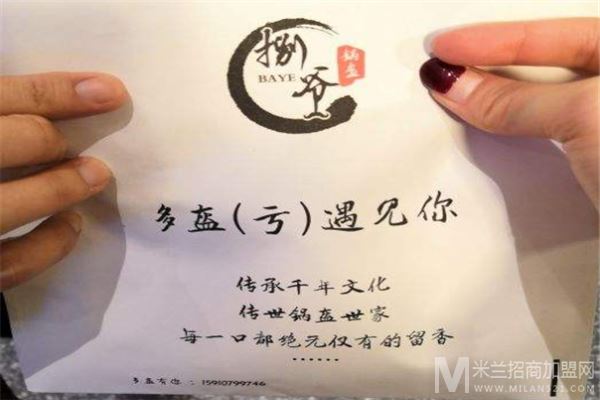 捌爷
BAYE
锅盔
多盔(亏)遇见你
传承千年文化
传世锅盔世家
每一口都绝无仅有的留香
······
多盔有你: 15910799746
米兰招商加盟网
WWW.MILAN121.COM